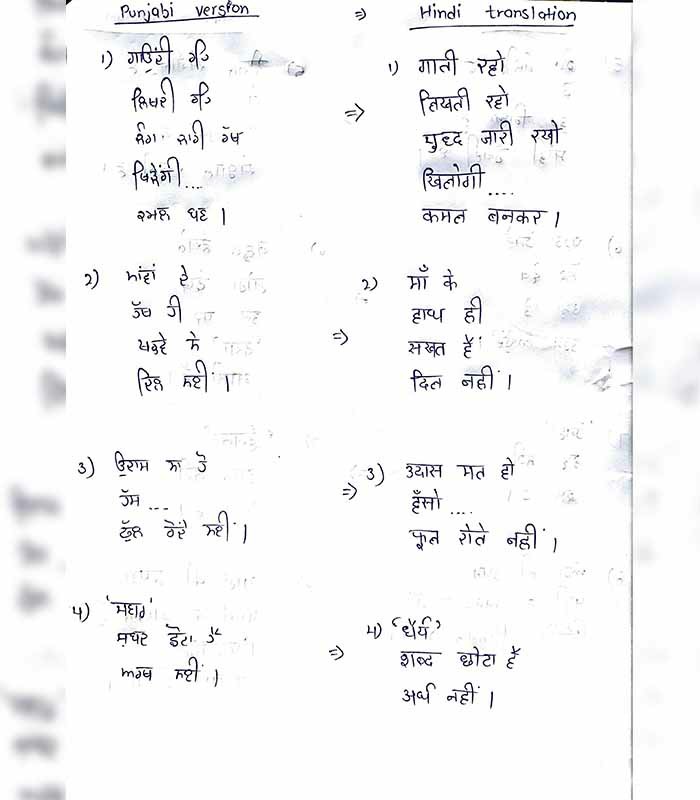 Punjabi version ⇒ Hindi translation
1) ਗਾਉਂਦੀ ਰਹਿ
ਲਿਖਦੀ ਰਹਿ
ਜੰਗ ਜਾਰੀ ਰੱਖ
ਖਿੜੇਂਗੀ....
ਕਮਲ ਬਣ ।
⇒
1) गाती रहो
लिखती रहो
युध्द जारी रखो
खिलोगी ....
कमल बनकर ।
2) ਮਾਂਵਾਂ ਦੇ
ਹੱਥ ਹੀ
ਦਿਲ ਨਹੀਂ ।
⇒
2) माँ के
हाथ ही
सख्त हैं
दिल नहीं ।
3) ਉਦਾਸ ਨਾ ਹੋ
ਹੱਸ ....
ਫੁੱਲ ਰੋਂਦੇ ਨਹੀਂ ।
⇒
3) उदास मत हो
हँसो ....
फूल रोते नहीं ।
4) 'ਸਬਰ'
ਸ਼ਬਦ ਛੋਟਾ ਹੈ
ਅਰਥ ਨਹੀਂ ।
⇒
4) 'धैर्य'
शब्द छोटा है
अर्थ नहीं ।